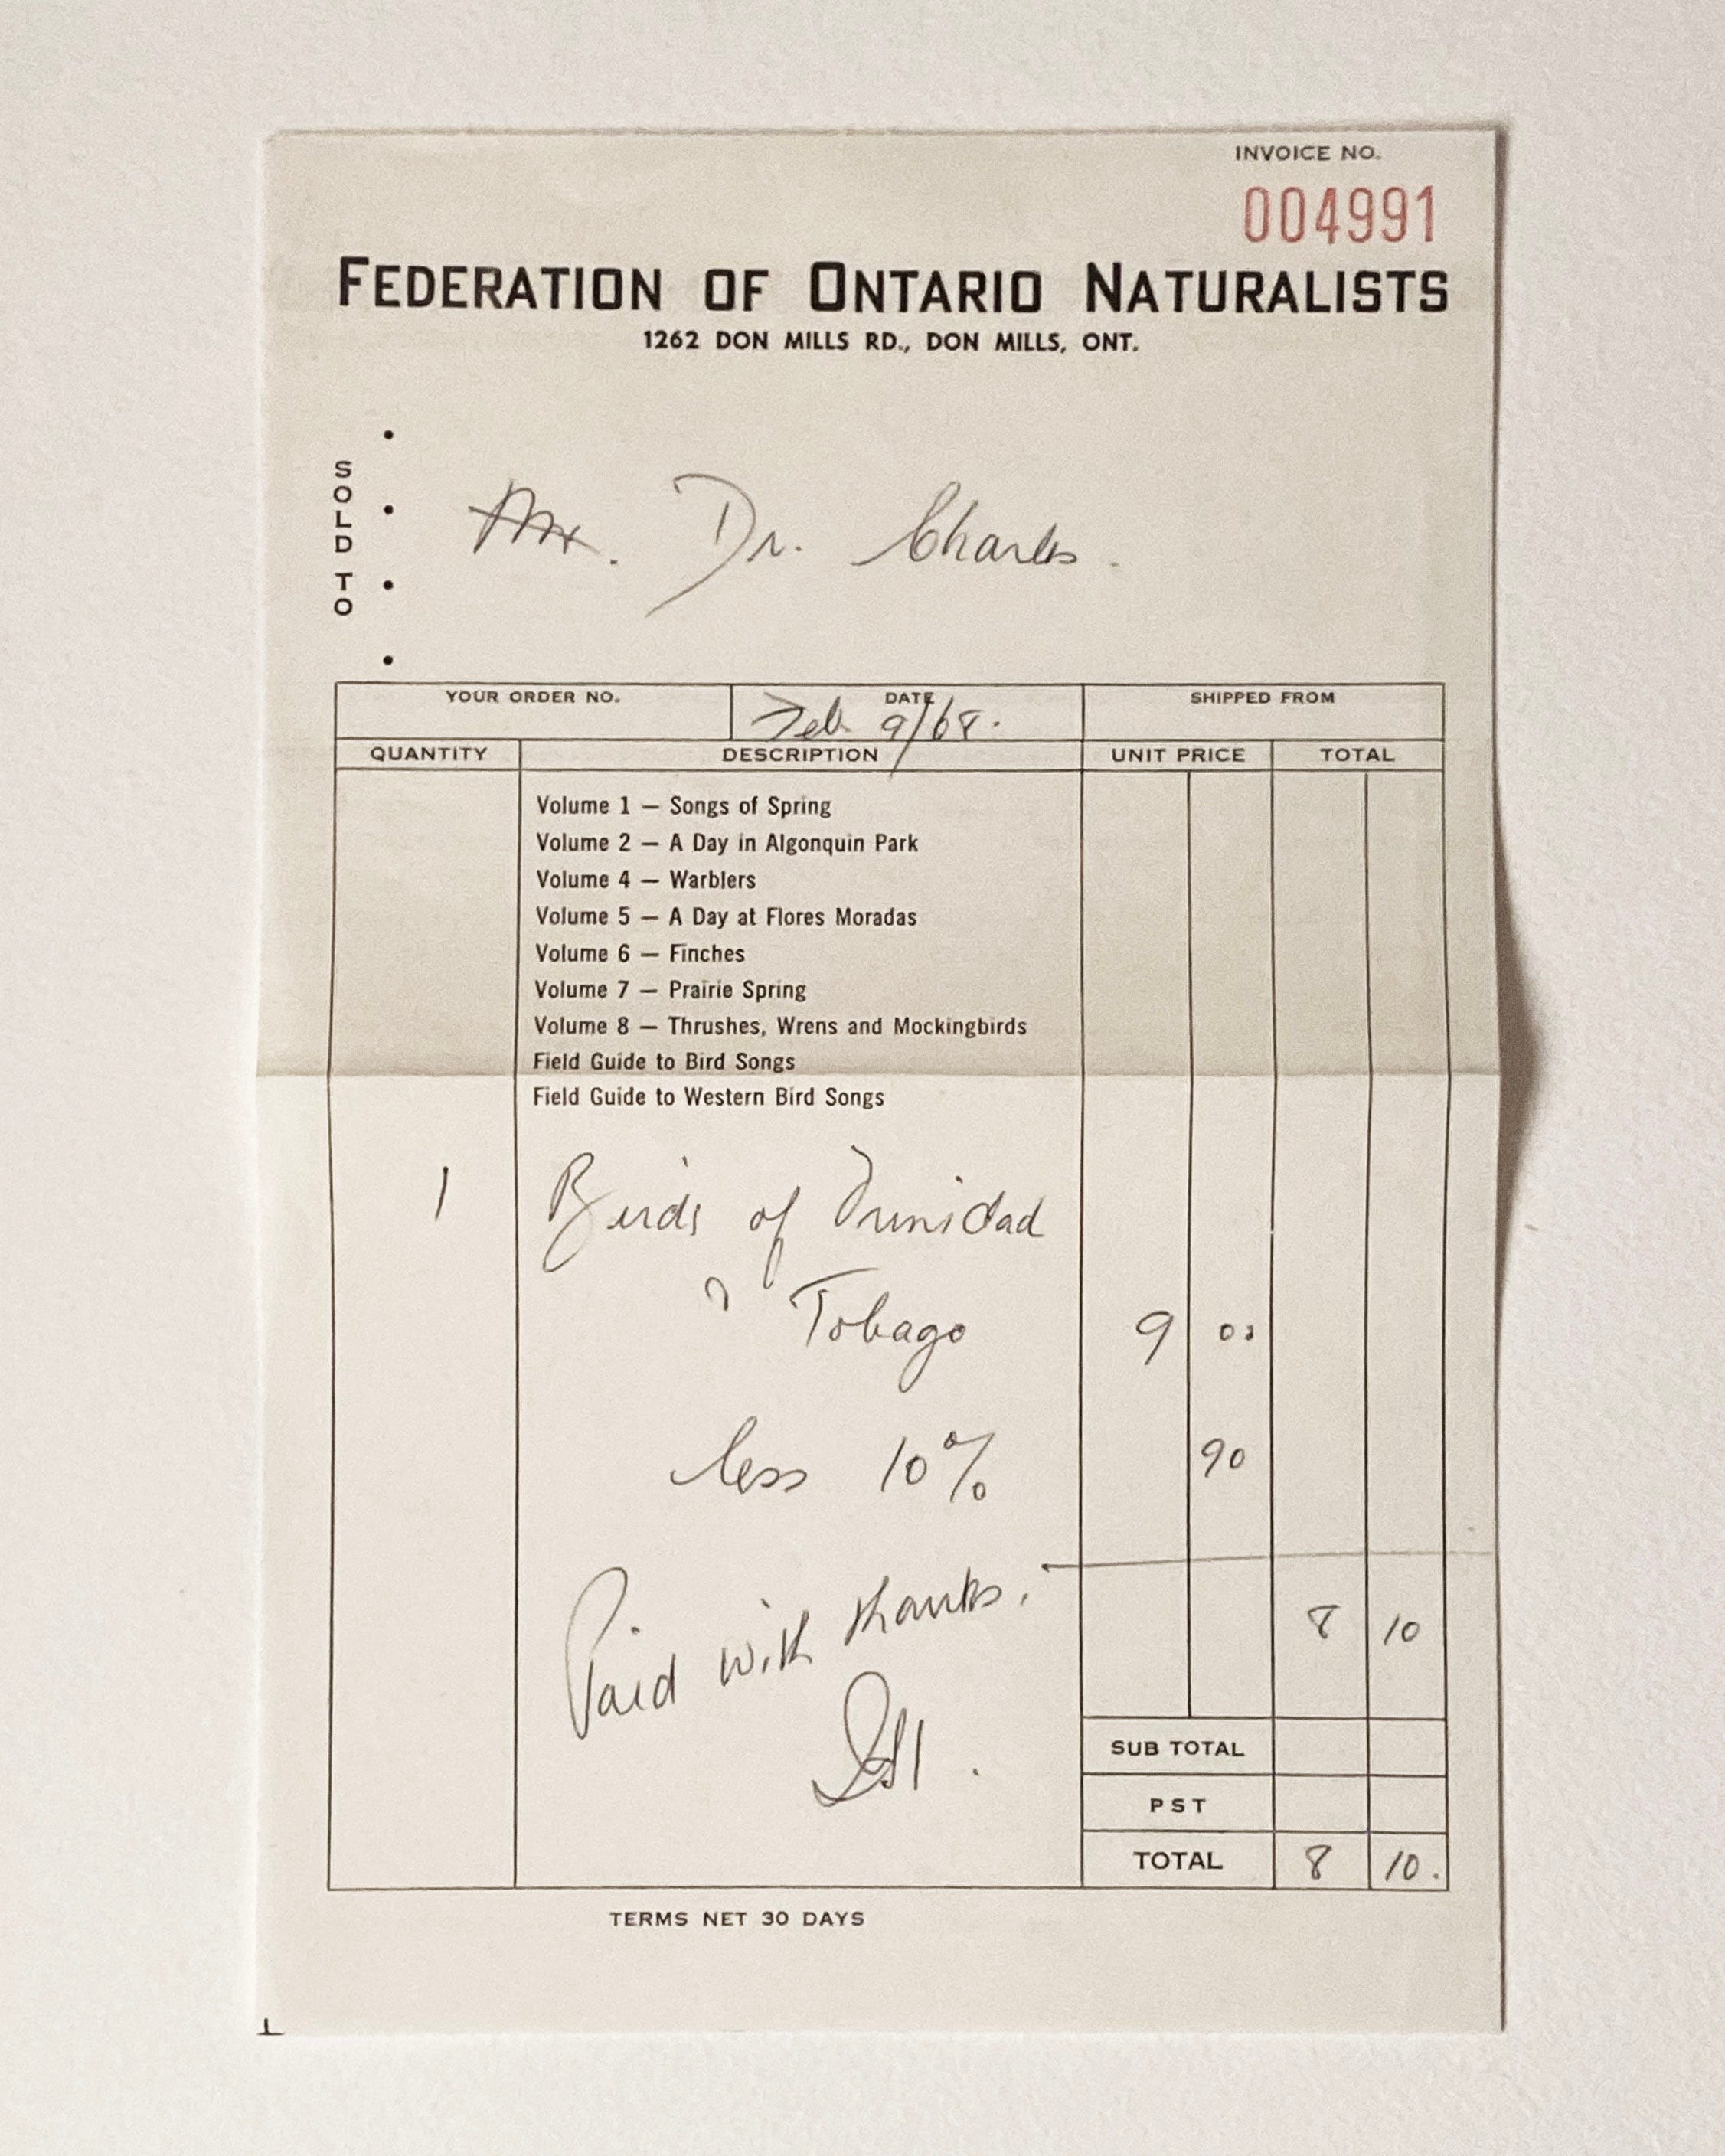 INVOICE NO.
004991
FEDERATION OF ONTARIO NATURALISTS
1262 DON MILLS RD., DON MILLS, ONT.
SOLD TO
Mr. Dr. Charles.
YOUR ORDER NO. DATE SHIPPED FROM
Feb. 9/68.
QUANTITY DESCRIPTION UNIT PRICE TOTAL
Volume 1 — Songs of Spring
Volume 2 — A Day in Algonquin Park
Volume 4 — Warblers
Volume 5 — A Day at Flores Moradas
Volume 6 — Finches
Volume 7 — Prairie Spring
Volume 8 — Thrushes, Wrens and Mockingbirds
Field Guide to Bird Songs
Field Guide to Western Bird Songs
1 Birds of Trinidad
Tobago 9 00
less 10% 90
Paid with thanks.
8 10
SUB TOTAL
PST
TOTAL 8 10.
TERMS NET 30 DAYS